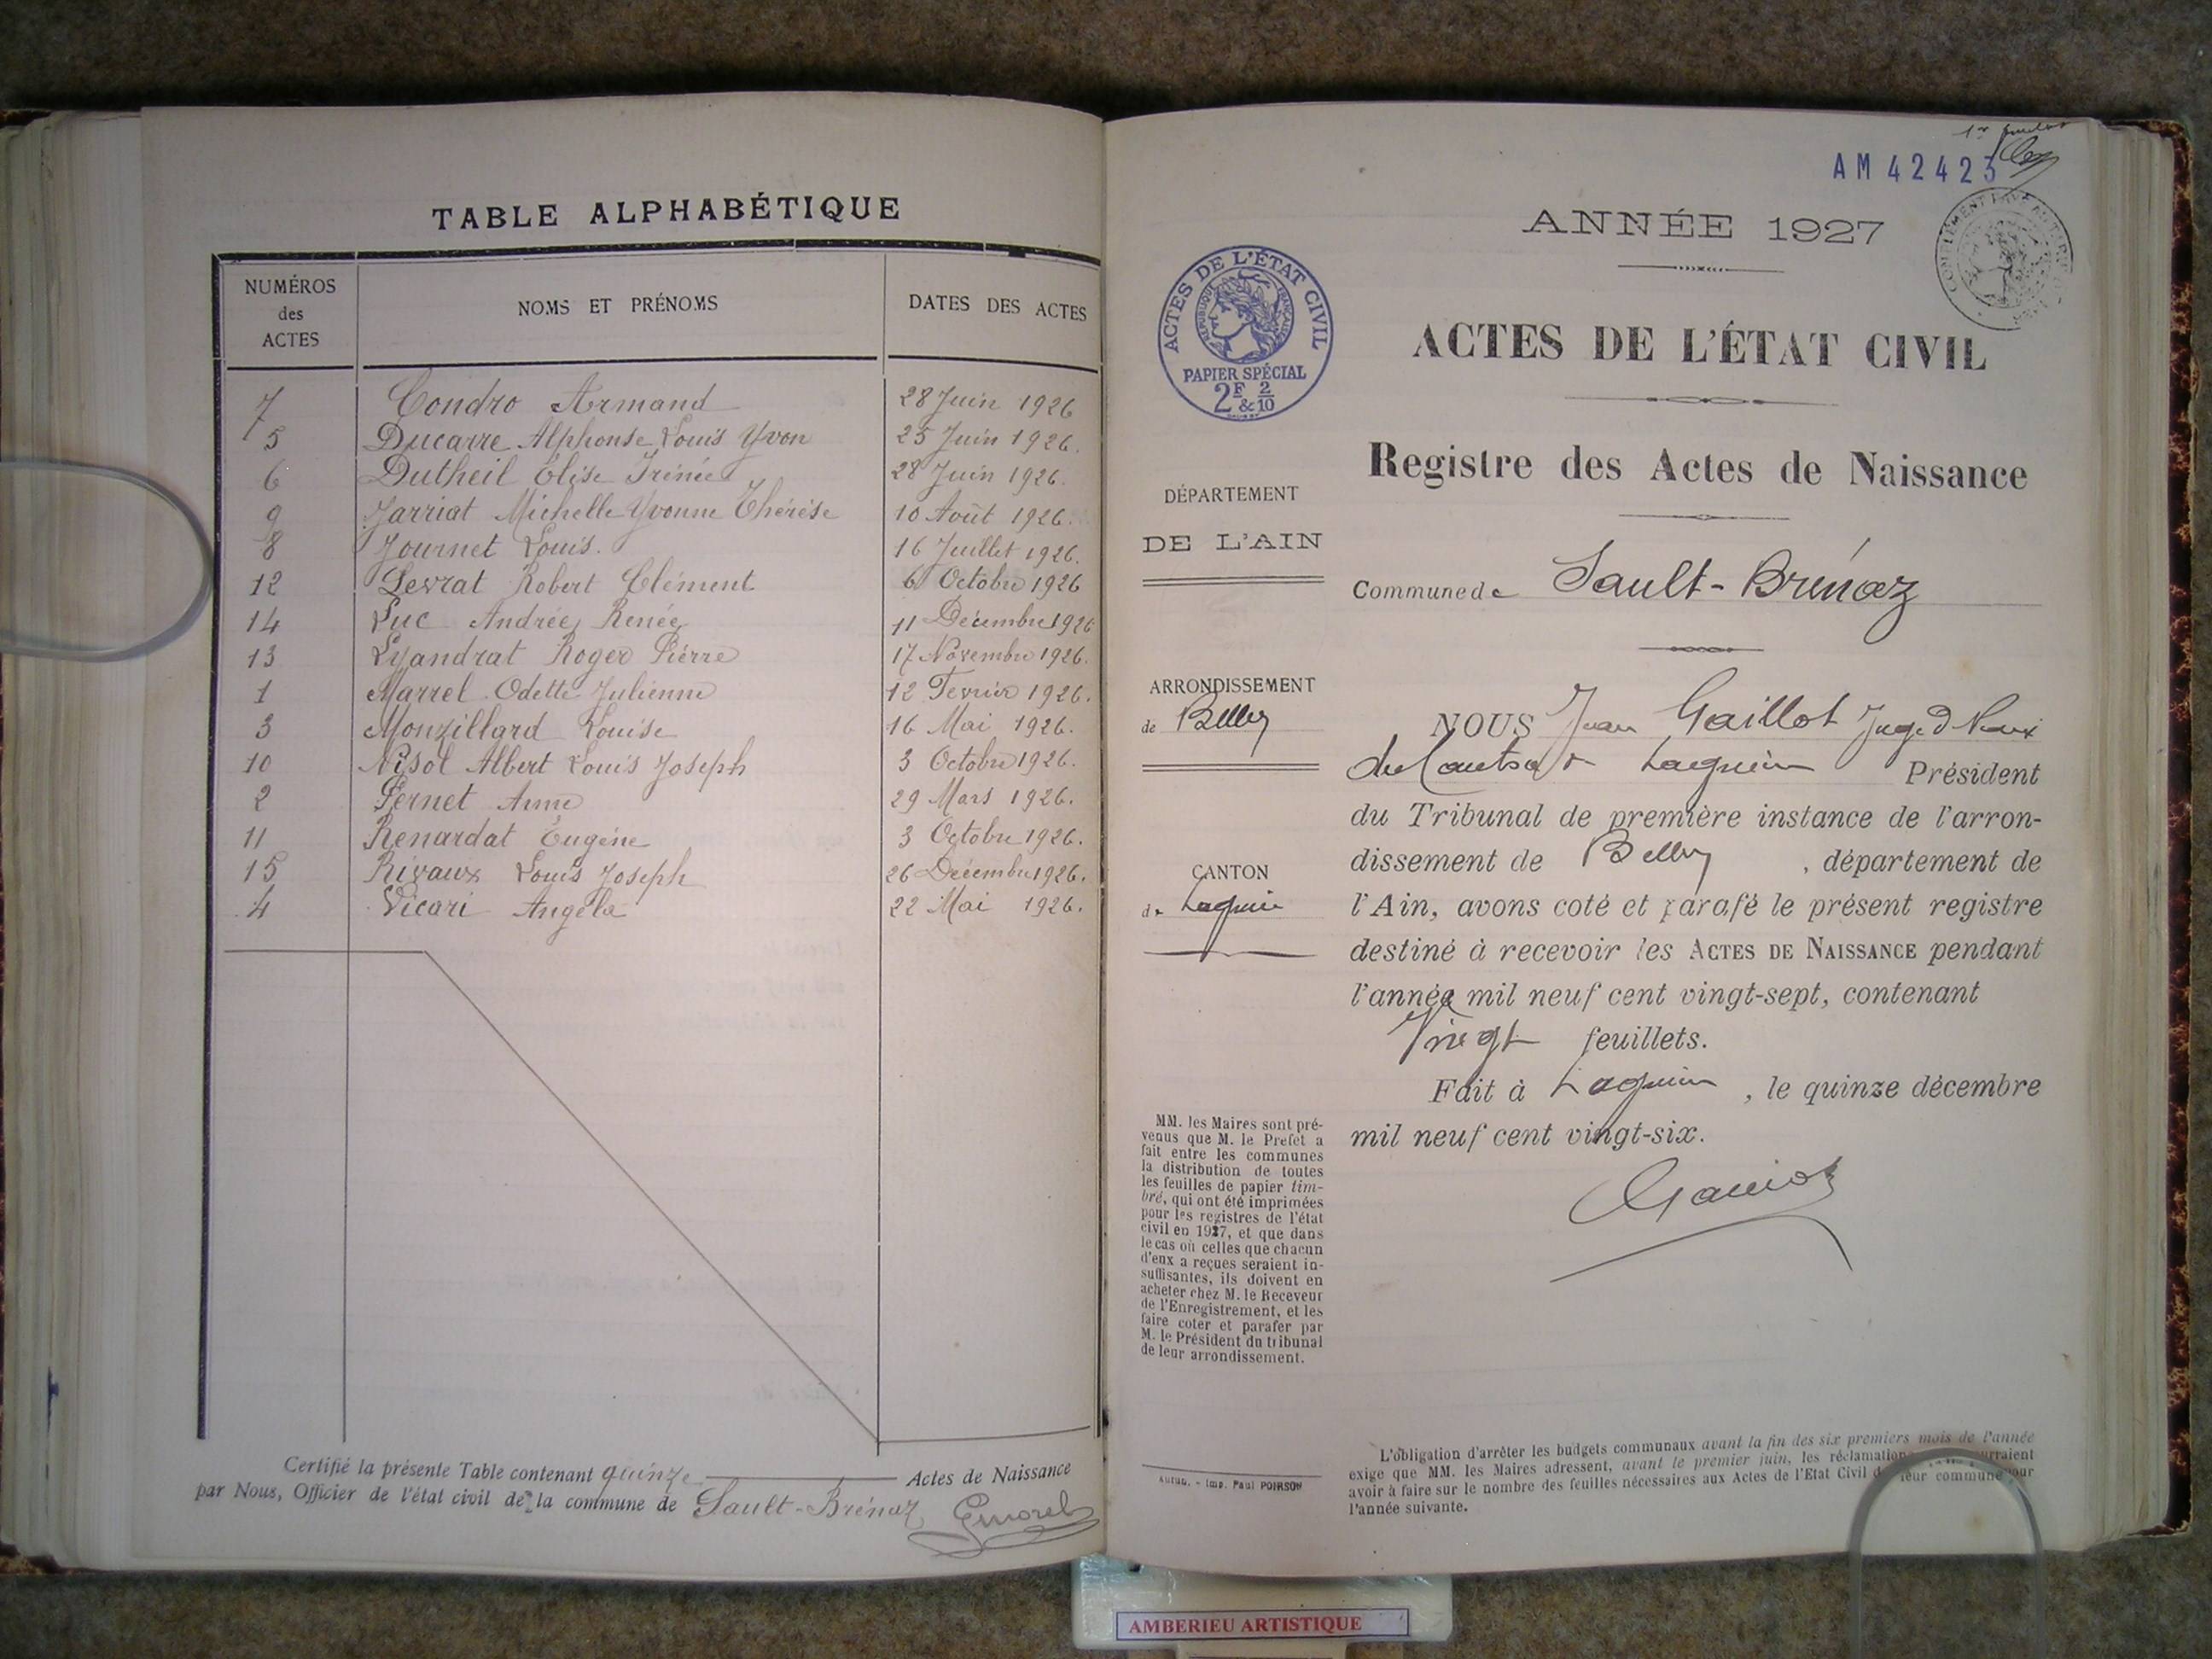 TABLE ALPHABÉTIQUE
NUMÉROS des ACTES
NOMS ET PRÉNOMS
DATES DES ACTES
7 Condro Armand 28 Juin 1926
5 Ducarre Alphonse Louis Yvon 25 Juin 1926.
6 Dutheil Élise Irénée 28 Juin 1926.
9 Jarriat Michelle Yvonne Thérèse 10 Août 1926.
8 Journet Louis. 16 Juillet 1926.
12 Levrat Robert Clément 6 Octobre 1926
14 Luc Andrée Renée 11 Décembre 1926
13 Lyandrat Roger Pierre 17 Novembre 1926.
1 Marrel Odette Julienne 12 Fevrier 1926.
3 Monfillard Louise 16 Mai 1926.
10 Nisol Albert Louis Joseph 3 Octobre 1926.
2 Pernet Anne 29 Mars 1926.
11 Renardat Eugène 3 Octobre 1926.
15 Rivaux Louis Joseph 26 Décembre 1926.
4 Vicari Angéla 22 Mai 1926.
Certifié la présente Table contenant quinze Actes de Naissance
par Nous, Officier de l'état civil de la commune de Sault-Brénaz
AM 42423
ANNÉE 1927
ACTES DE L'ÉTAT CIVIL
RÉPUBLIQUE FRANÇAISE
PAPIER SPÉCIAL
2F & 2/10
ACTES DE L'ÉTAT CIVIL
Registre des Actes de Naissance
DÉPARTEMENT
DE L'AIN
Commune de Sault-Brénaz
ARRONDISSEMENT
de Belley
NOUS Jean Gaillot Juge d Paix
du Canton d Lagnieu Président
du Tribunal de première instance de l'arron-
dissement de Belley, département de
CANTON
de Lagnieu
l'Ain, avons coté et parafé le présent registre
destiné à recevoir les ACTES DE NAISSANCE pendant
l'année mil neuf cent vingt-sept, contenant
Vingt feuillets.
Fait à Lagnieu, le quinze décembre
mil neuf cent vingt-six.
MM. les Maires sont pré-
venus que M. le Préfet a
fait entre les communes
la distribution de toutes
les feuilles de papier tim-
bré, qui ont été imprimées
pour les registres de l'état
civil en 1927, et que dans
le cas où celles que chacun
d'eux a reçues seraient in-
suffisantes, ils doivent en
acheter chez M. le Receveur
de l'Enregistrement, et les
faire coter et parafer par
M. le Président du tribunal
de leur arrondissement.
Autun. - Imp. Paul POIRSON
L'obligation d'arrêter les budgets communaux avant la fin des six premiers mois de l'année
exige que MM. les Maires adressent, avant le premier juin, les réclamations pourraient
avoir à faire sur le nombre des feuilles nécessaires aux Actes de l'Etat Civil de leur commune pour
l'année suivante.
AMBERIEU ARTISTIQUE